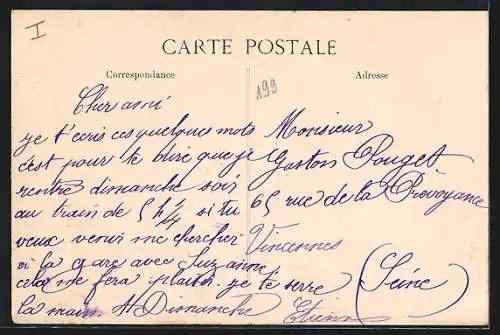 I
CARTE POSTALE
Correspondance
Adresse
A99
Cher ami
je t'écris ces quelques mots
c'est pour te dire que je
rentre dimanche soir
au train de 5 h 1/4 si tu
veux venir me chercher
a la gare avec Suzanne
cela me fera plaisir je te serre
la main A Dimanche
Etienne
Monsieur
Gaston Pouget
65 rue de la Prévoyance
Vincennes
(Seine)